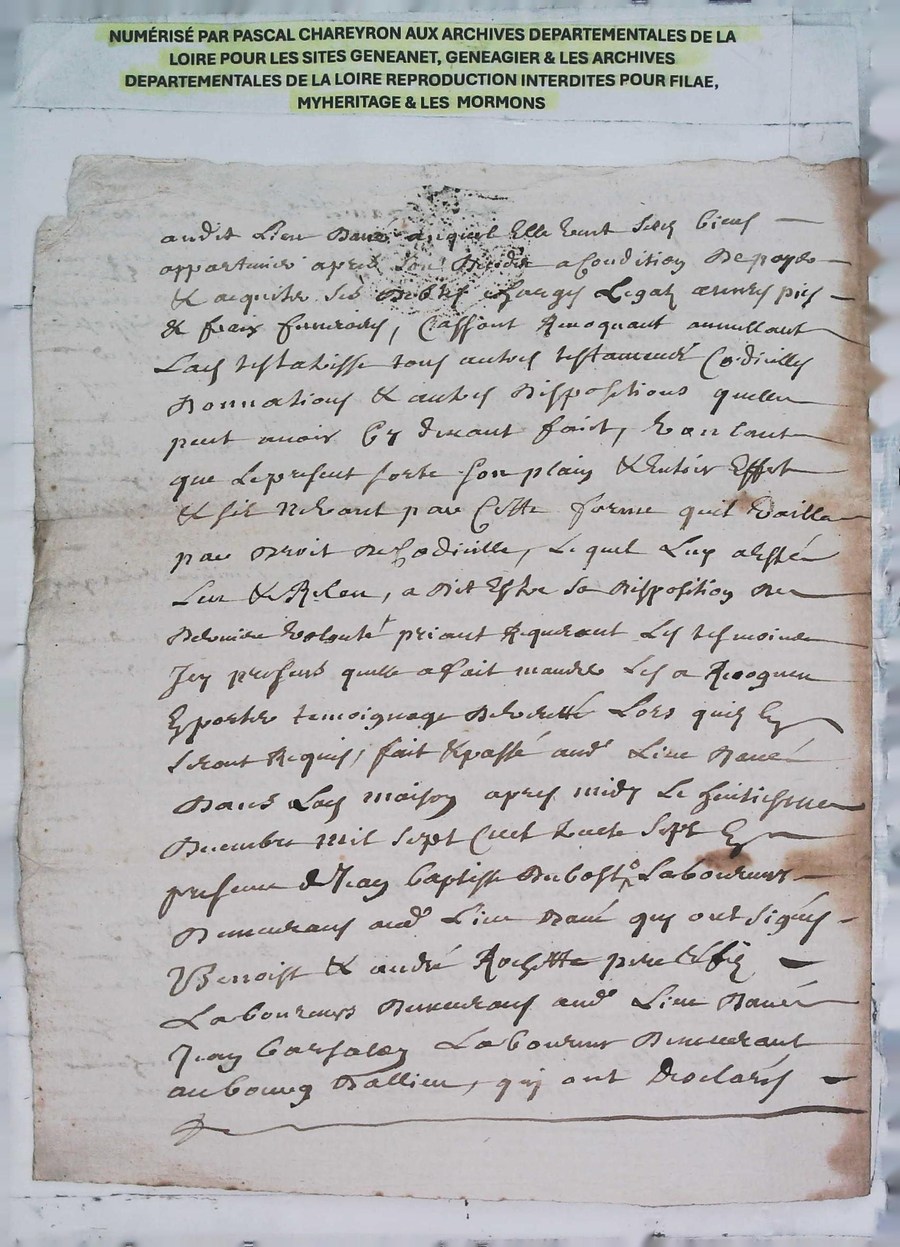 NUMÉRISÉ PAR PASCAL CHAREYRON AUX ARCHIVES DEPARTEMENTALES DE LA
LOIRE POUR LES SITES GENEANET, GENEAGIER & LES ARCHIVES
DEPARTEMENTALES DE LA LOIRE REPRODUCTION INTERDITES POUR FILAE,
MYHERITAGE & LES MORMONS
audit Lieu auquel Elle veut Ses biens
appartenir apres Son Decedz a Condition De payer
& acquiter Ses Debtes charges Legatz œuvres pies
& fraix funerairs, Cassant Revoquant annullant
Lad testatrisse tous autres testaments Codicilles
Donnations & autres Dispositions quelle
peut avoir Cy devant fait, Voulant
que Le present sorte Son plain & Entier Effet
& sil ne vaut par Cette forme quil vaille
par Droit De Codicille, Lequel Luy a Esté
Leu & Releu, a Dit Estre Sa Disposition De
Derniere volonté priant Requerant Les tesmoins
Icy presens quelle a fait mander Les a Recognu
Et porter temoignage De verité Lors quilz En
Seront Requis, fait & passé aud Lieu
Dans Lad maison apres midy Le huitiesme
Decembre mil Sept Cent trente Sept En
presence de Jean baptiste Dubost Laboureur
Demeurans aud Lieu qui ont Signés
Benoist & andré Rochette pere & fils
Laboureurs Demeurans aud Lieu
Jean Laboureur Demeurant
au bourg Dallieu, qui ont Declarés